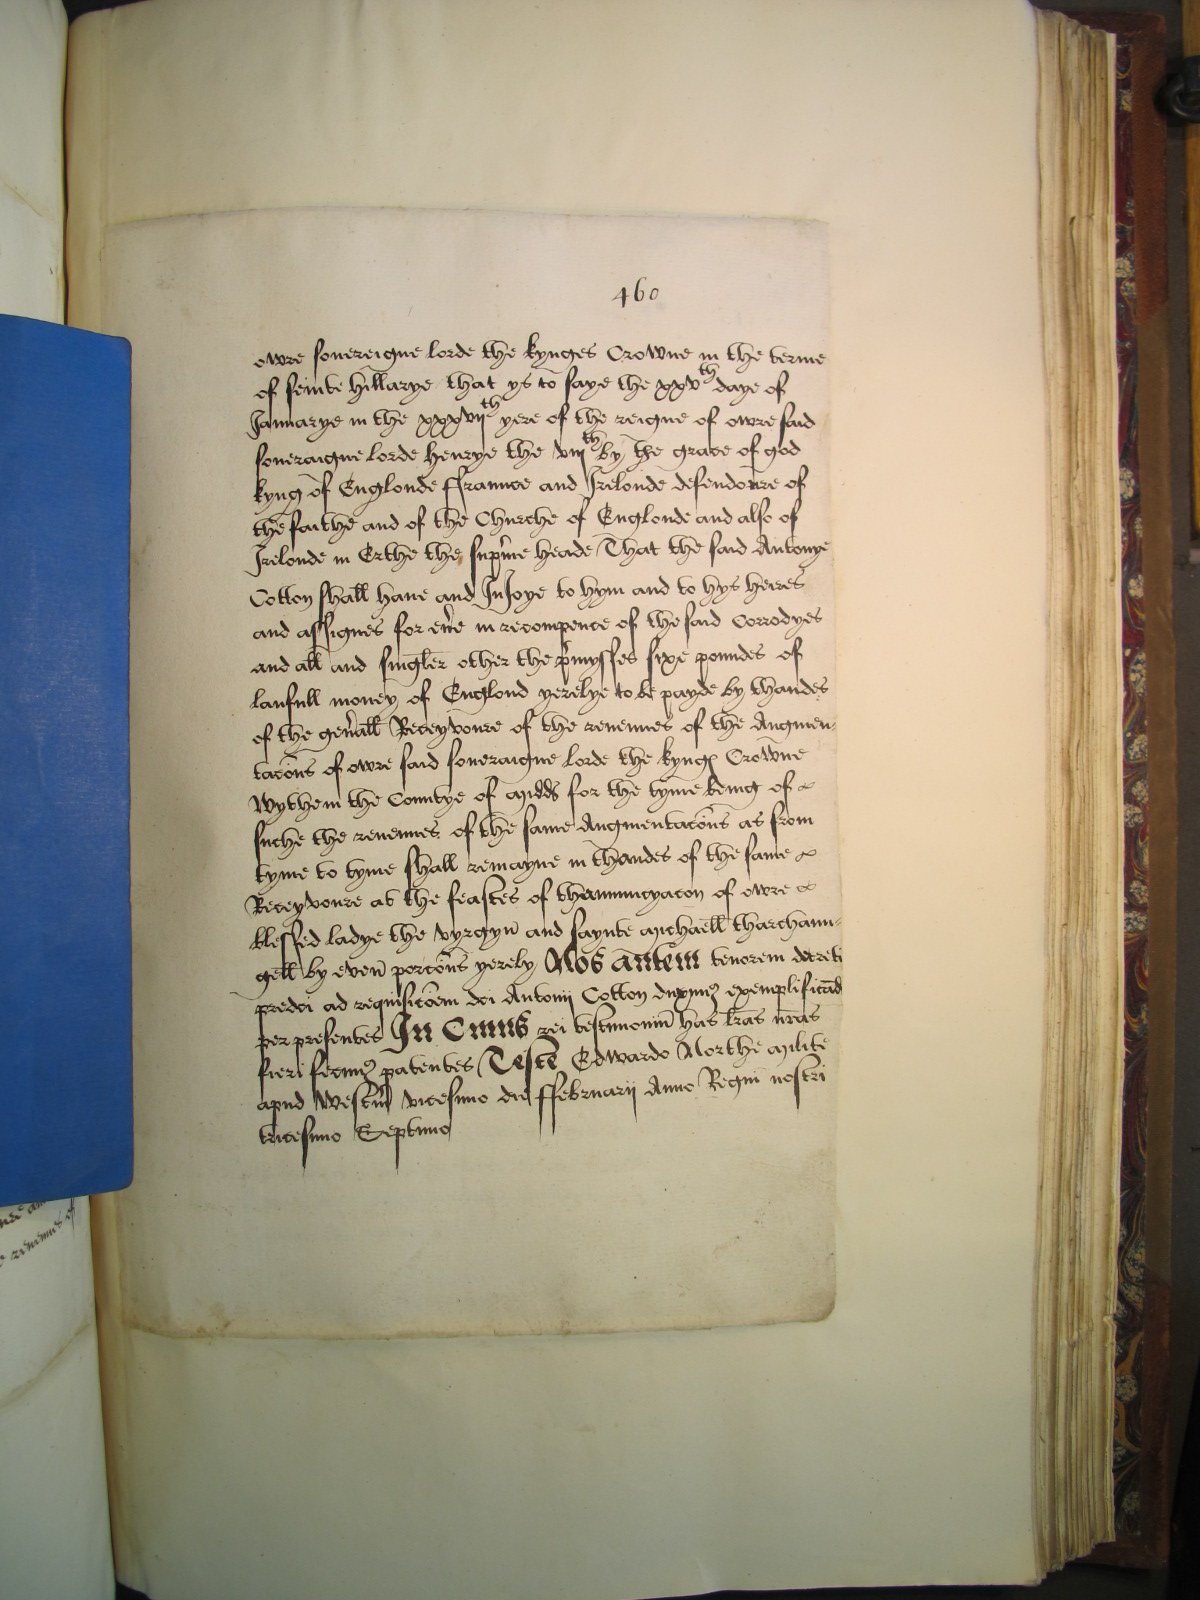 460
owre sovereigne lorde the kynges Crowne in the terme
of seinte hillarye that ys to saye the xxvth daye of
Januarye in the xxxviith yere of the reigne of owre said
soveraigne lorde henrye the viiith by the grace of god
kyng of Englonde ffraunce and Irelonde defendoure of
the faithe and of the Churche of Englonde and also of
Irelonde in Erthe the supme heade That the said Antonye
Cotton shall have and InJoye to hym and to hys heires
and assignes for eve in recompence of the said Corrodyes
and all and singler other the pmysses sixe poundes of
laufull money of Englond yerelye to be payde by thandes
of the genall Receyvoure of the revenues of the Augmen-
tacons of owre said soveraigne lorde the kyng Crowne
wythein the Countye of midds for the tyme being of
suche the revenues of the same Augmentacons as from
tyme to tyme shall remayne in thandes of the same
Receyvoure at the feastes of thannuncyacon of owre
blessed ladye the vyrgyn and saynte michaell tharchaun-
gell by even porcons yerely Nos autem tenorem decreti
predci ad requisicoem dci Antonij Cotton duximus exemplificand
per presentes In Cuius rei testimonium has lras nras
fieri fecimus patentes Teste Edwardo Northe milite
apud Westm vicesimo die ffebruarij Anno Regni nostri
tricesimo Septimo